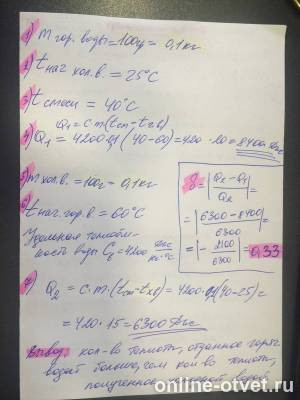 1) m гор. воды = 100г = 0,1 кг
2) t нач хол. в. = 25°C
3) t смеси = 40°C
Q₁ = c m (tсм - tгв)
4) Q₁ = 4200·0,1 (40-60) = 420 · 20 = 8400 Дж
5) m хол. в. = 100г - 0,1 кг
6) t нач. гор. в. = 60°C
Удельная теплоём-
кость воды C₂ = 4200 Дж/кг·°C
7) Q₂ = c·m·(tсм - tхв) = 4200·0,1(40-25) =
= 420 · 15 = 6300 Дж
= |Q₂ - Q₁ / Q₂| =
= |6300 - 8400 / 6300| =
= |- 2100 / 6300| = 0,33
Вывод: кол-во теплоты, отданное горяч.
водой больше, чем кол-во теплот,
полученное холодной водой.
online-otvet.ru